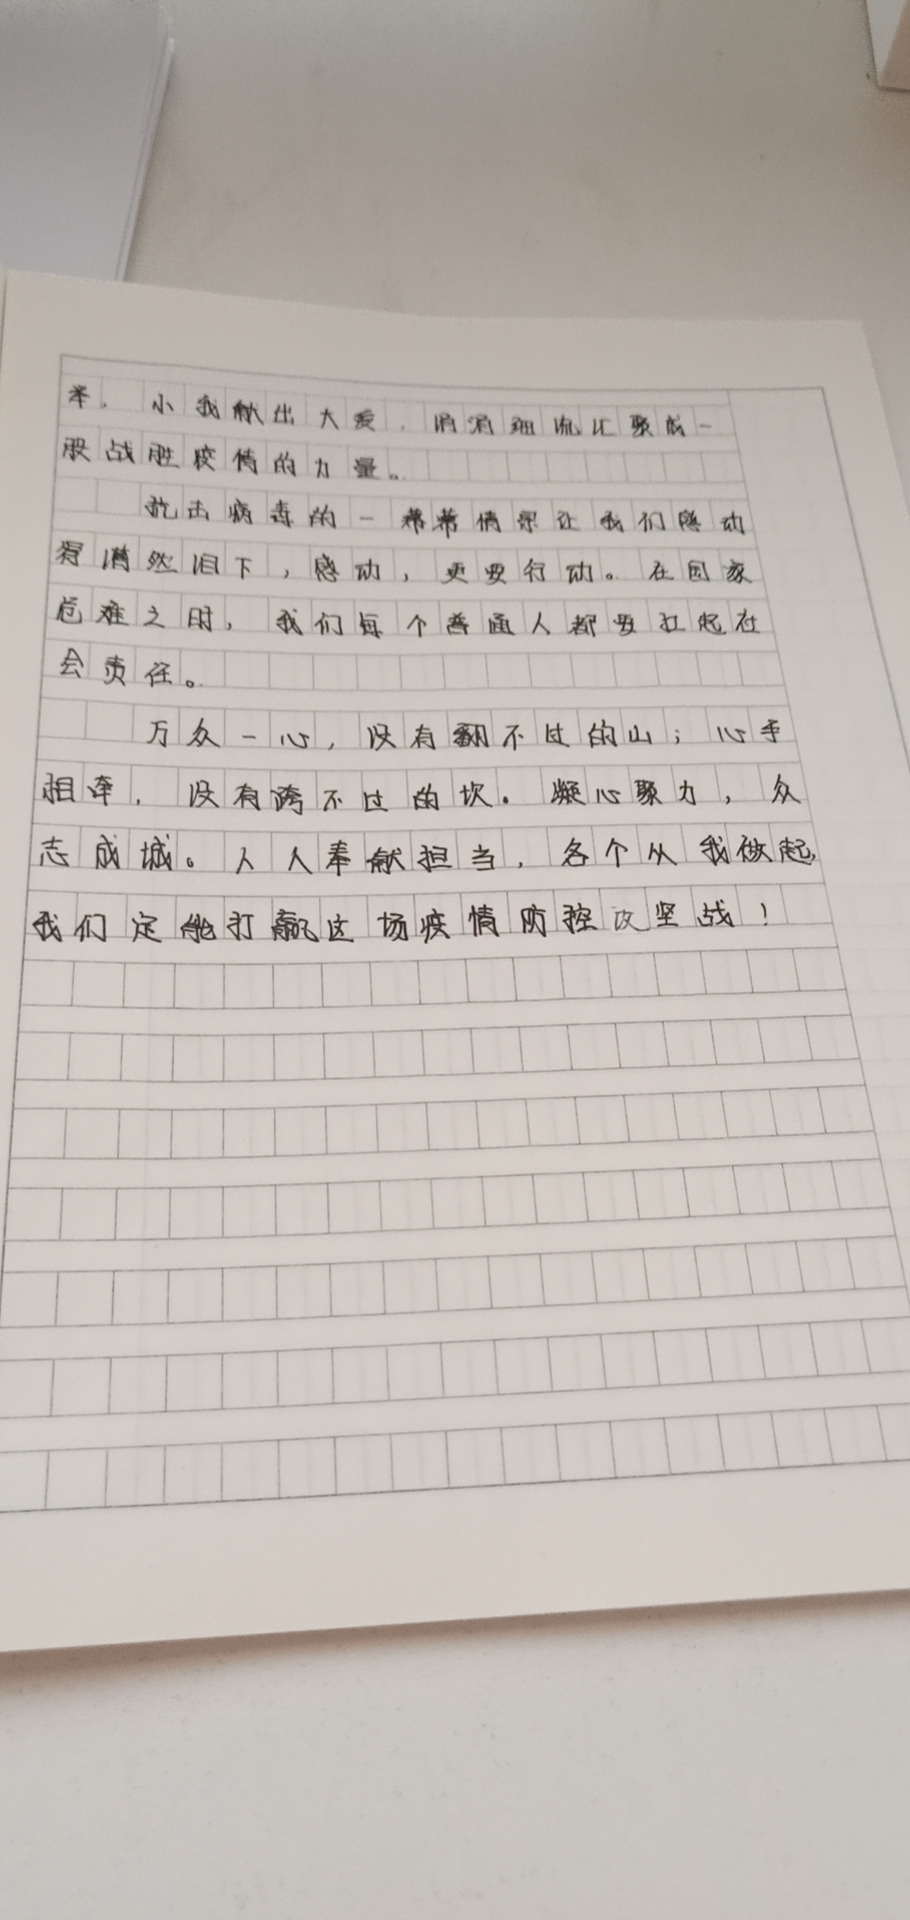 举，小我献出大爱，涓涓细流汇聚成一
股战胜疫情的力量。
抗击病毒的一幕幕情景让我们感动
得潸然泪下，感动，更要行动。在国家
危难之时，我们每个普通人都要扛起社
会责任。
万众一心，没有翻不过的山；心手
相牵，没有跨不过的坎。凝心聚力，众
志成城。人人奉献担当，各个从我做起，
我们定能打赢这场疫情防控攻坚战！